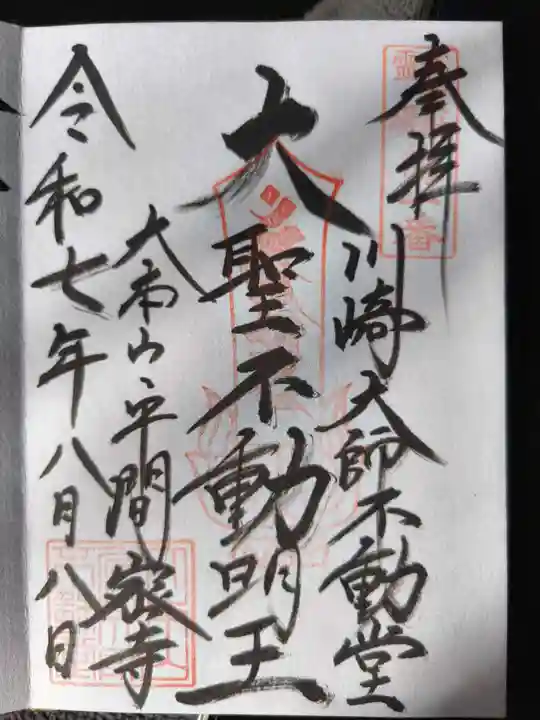 奉拝
川崎大師不動堂
大聖不動明王
大本山平間寺
令和七年八月八日